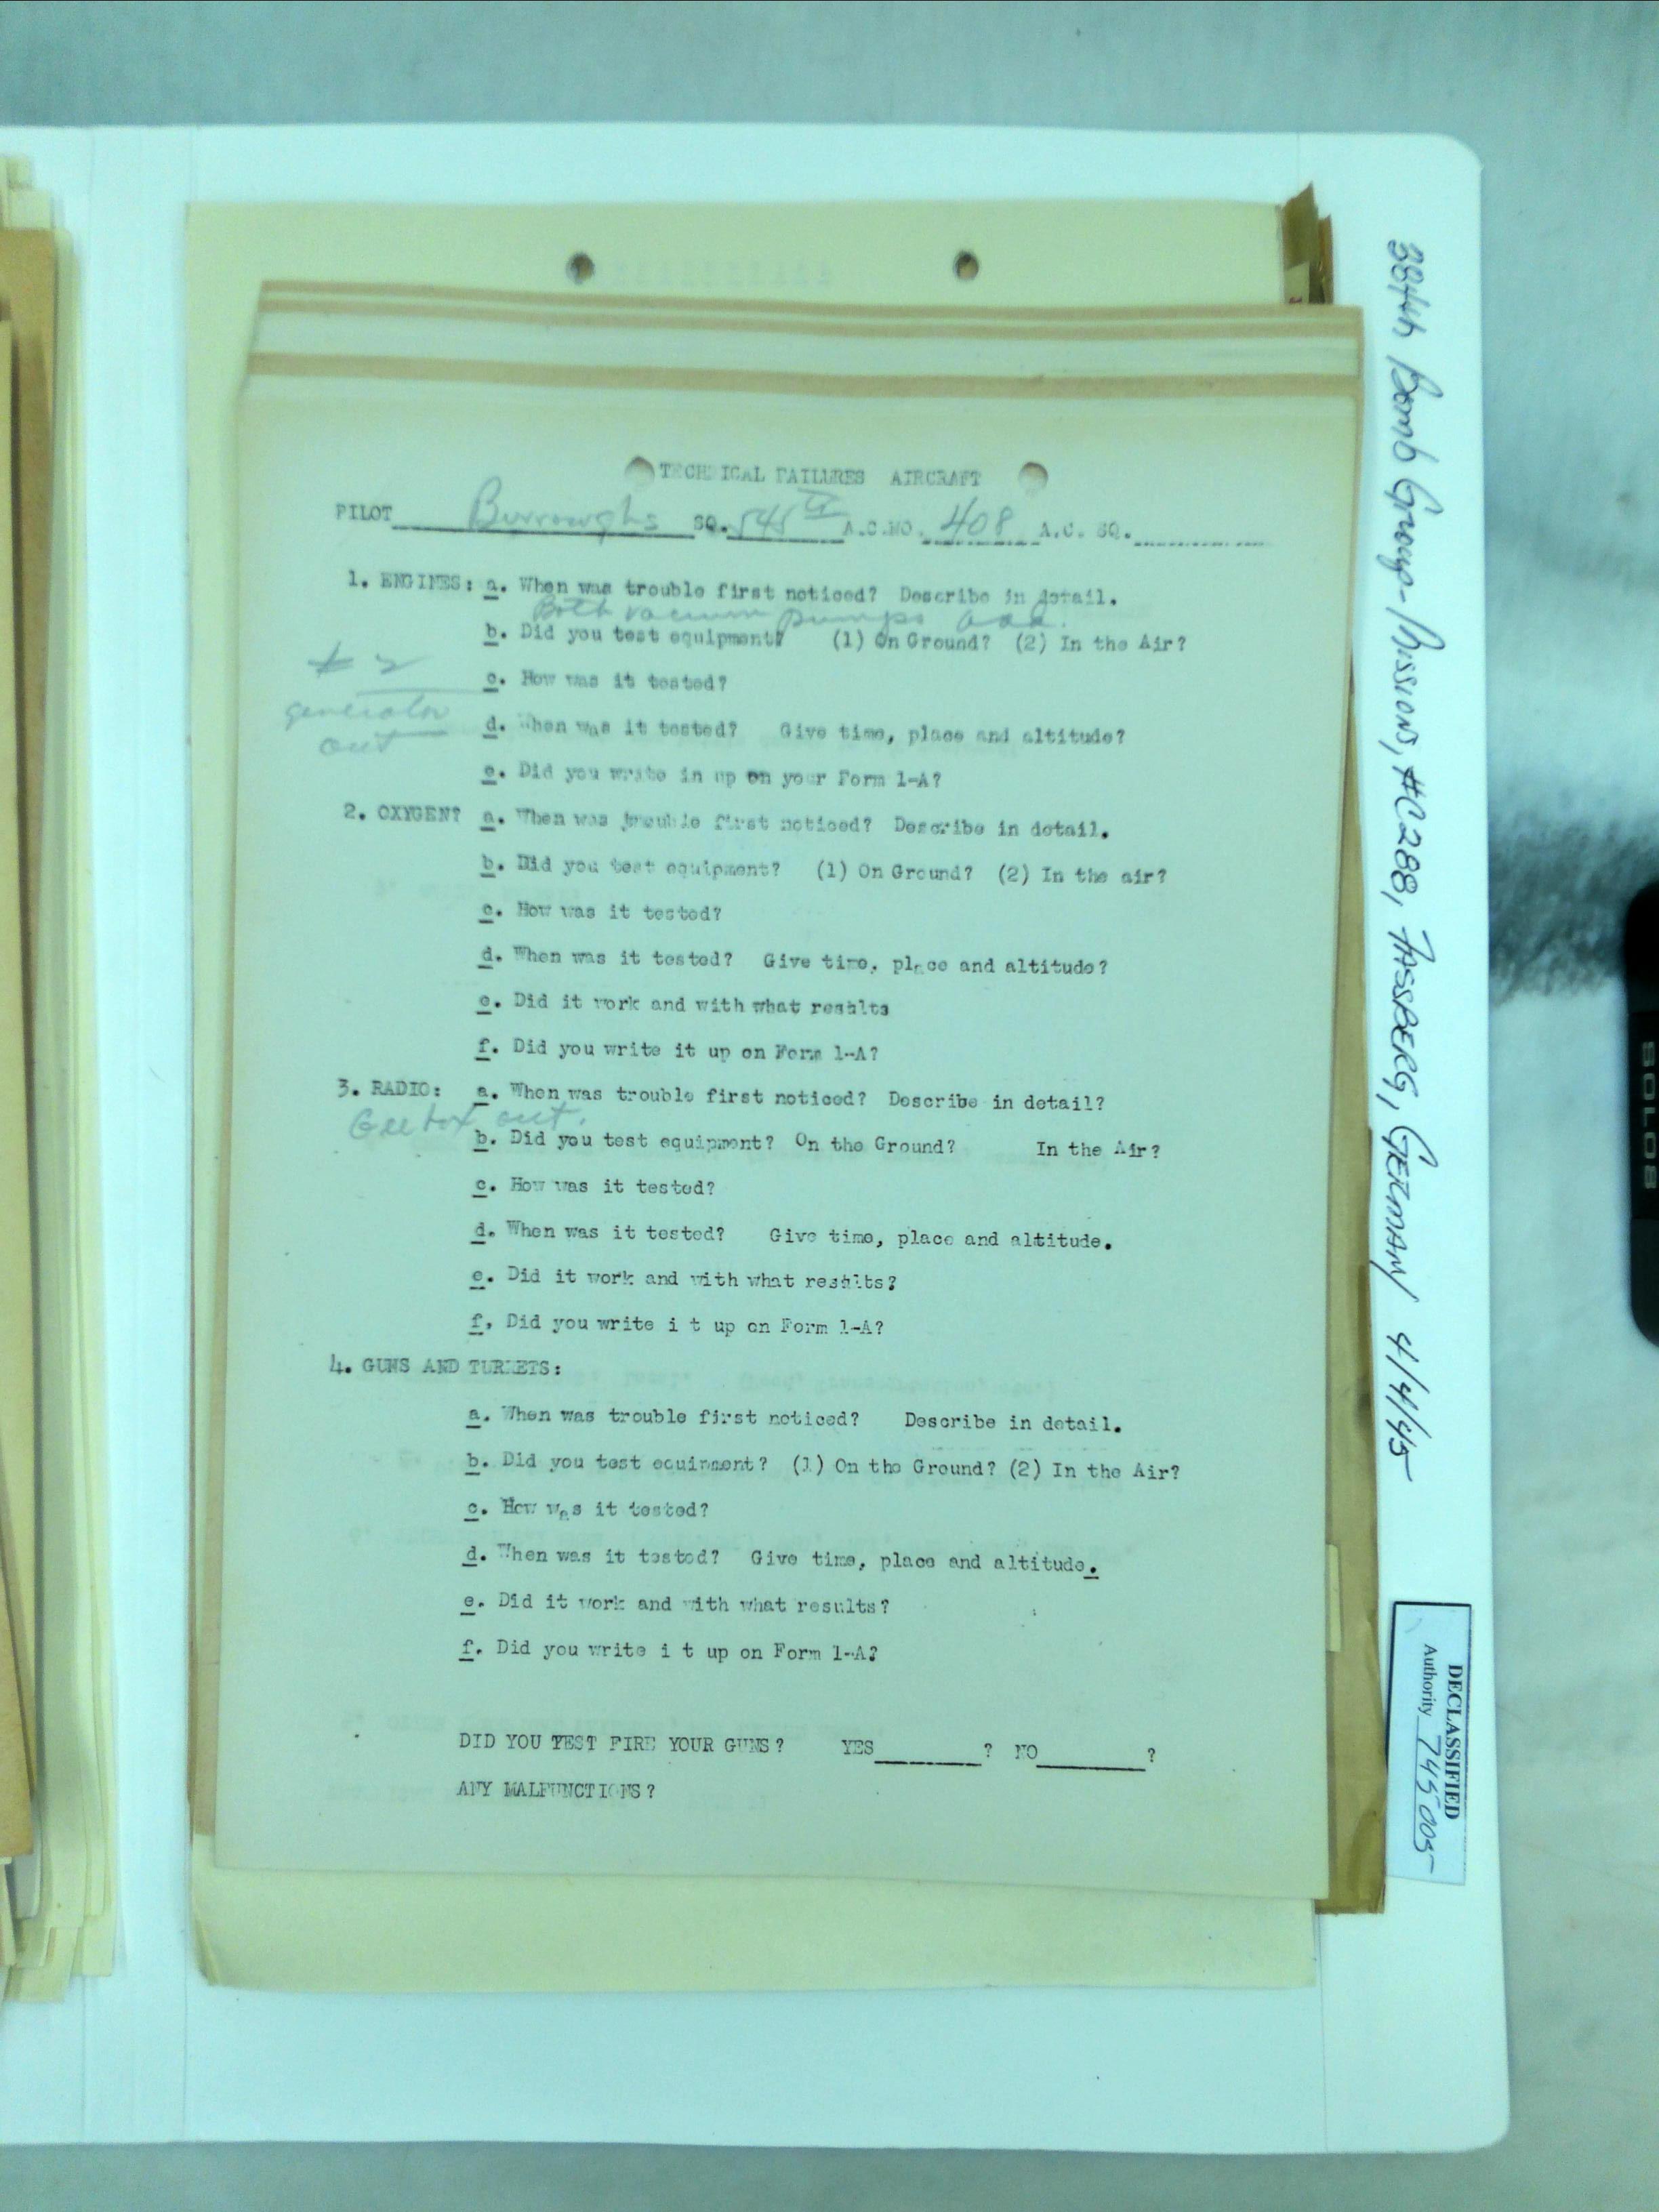 TECHNICAL FAILURES AIRCRAFT
PILOT Burroughs SQ. 545th A.C.NO. 408 A.C. SQ.
1. ENGINES: a. When was trouble first noticed? Describe in detail.
Both vacuum pumps
b. Did you test equipment? (1) On Ground? (2) In the Air?
# 2
generator
out
c. How was it tested?
d. When was it tested? Give time, place and altitude?
e. Did you write in up on your Form 1-A?
2. OXYGEN? a. When was trouble first noticed? Describe in detail.
b. Did you test equipment? (1) On Ground? (2) In the air?
c. How was it tested?
d. When was it tested? Give time, place and altitude?
e. Did it work and with what resalts
f. Did you write it up on Form 1-A?
3. RADIO: a. When was trouble first noticed? Describe in detail?
Gee box out.
b. Did you test equipment? On the Ground? In the Air?
c. How was it tested?
d. When was it tested? Give time, place and altitude.
e. Did it work and with what resalts?
f. Did you write i t up on Form 1-A?
4. GUNS AND TURRETS:
a. When was trouble first noticed? Describe in detail.
b. Did you test equipment? (1) On the Ground? (2) In the Air?
c. How was it tested?
d. When was it tested? Give time, place and altitude.
e. Did it work and with what results?
f. Did you write i t up on Form 1-A?
DID YOU TEST FIRE YOUR GUNS? YES ? NO ?
ANY MALFUNCTIONS?
384th Bomb Group-Missions, #C288, FASSBERG, GERMANY 4/4/45
DECLASSIFIED
Authority 745005
SOLO8